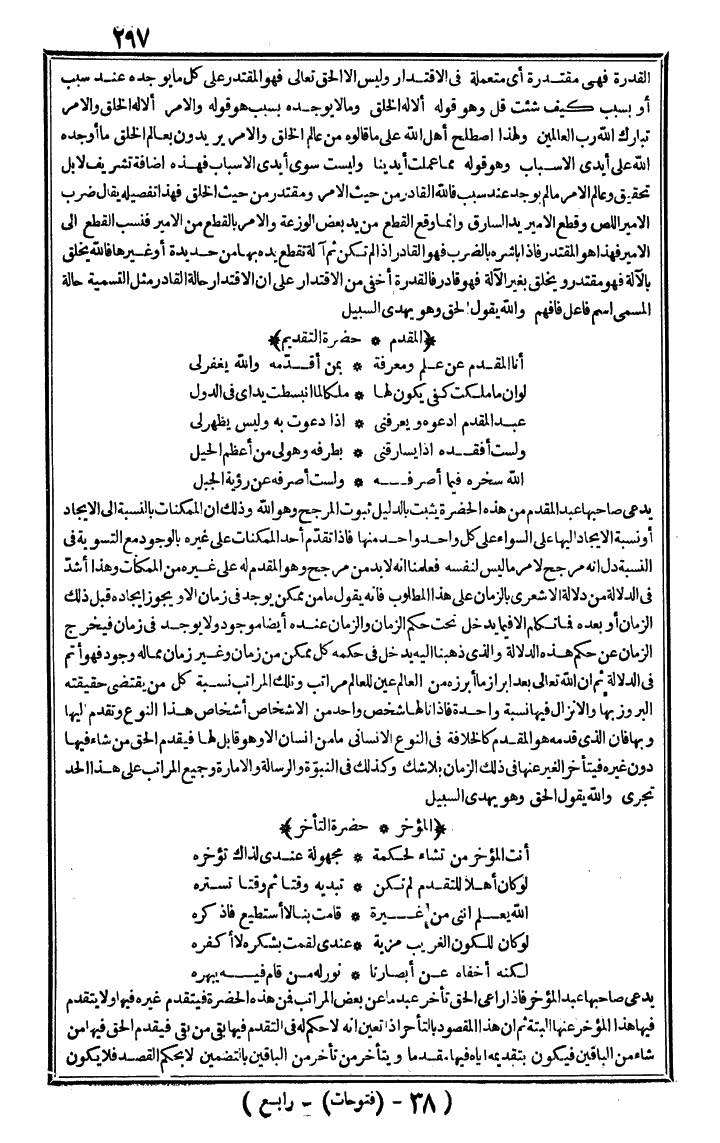 ٢٩٧
القدرة فهى مقتدرة أى متعملة فى الاقتدار وليس الا الحق تعالى فهو المقتدر على كل ما يوجده عند سبب
أو بسبب كيف شئت قل وهو قوله ألا له الخلق ومالا يوجده بسبب هو قوله والامر ألا له الخلق والامر
تبارك الله رب العالمين ولهذا اصطلح أهل الله على ما قالوه من عالم الخلق والامر يريدون بعالم الخلق ما أوجده
الله على أيدى الاسباب وهو قوله مما عملت أيدينا وليست سوى أيدى الاسباب فهذه اضافة تشريف لا بل
تحقيق وعالم الامر مالم يوجد عند سبب فالله القادر من حيث الامر ومقتدر من حيث الخلق فهذا تفصيله يقال ضرب
الامير اللص وقطع الامير يد السارق وانما وقع القطع من يد بعض الوزعة والامر بالقطع من الامير فنسب القطع الى
الامير فهذا هو المقتدر فاذا باشره بالضرب فهو القادر اذا لم تكن ثم آلة تقطع يده بها من حديدة أو غيرها فالله يخلق
بالآلة فهو مقتدر ويخلق بغير الآلة فهو قادر فالقدرة أخفى من الاقتدار على ان الاقتدار حالة القادر مثل التسمية حالة
المسمى اسم فاعل فافهم والله يقول الحق وهو يهدى السبيل
﴿المقدم * حضرة التقديم﴾
أنا المقدم عن علم ومعرفة * بمن أقدّمه والله يغفر لى
لو ان ما ملكت كفى يكون لها * ملكا لما انبسطت يداى فى الدول
عبد المقدم ادعوه ويعرفنى * اذا دعوت به وليس يظهر لى
ولست أفقده اذا يسارقنى * بطرفه وهو لى من أعظم الحيل
الله سخره فيما أصرفه * ولست أصرفه عن رؤية الجبل
يدعى صاحبها عبد المقدم من هذه الحضرة يثبت بالدليل ثبوت المرجح وهو الله وذلك ان الممكنات بالنسبة الى الايجاد
أو نسبة الايجاد اليها على السواء على كل واحد واحد منها فاذا تقدّم أحد الممكنات على غيره بالوجود مع التسوية فى
النسبة دل انه مرجح لامر ما ليس لنفسه فعلمنا انه لا بد من مرجح وهو المقدم له على غيره من الممكنات وهذا أشدّ
فى الدلالة من دلالة الاشعرى بالزمان على هذا المطلوب فانه يقول ما من ممكن يوجد فى زمان الا ويجوز ايجاده قبل ذلك
الزمان أو بعده فما تكلم الا فيما يدخل تحت حكم الزمان والزمان عنده أيضا موجود ولا يوجد فى زمان فيخرج
الزمان عن حكم هذه الدلالة والذى ذهبنا اليه يدخل فى حكمه كل ممكن من زمان وغير زمان مما له وجود فهو أتم
فى الدلالة ثم ان الله تعالى بعد ابراز ما أبرزه من العالم عين للعالم مراتب وتلك المراتب نسبة كل من يقتضى حقيقته
البروز بها والانزال فيها نسبة واحدة فاذا نالها شخص واحد من الاشخاص أشخاص هذا النوع وتقدم اليها
وبها فان الذى قدمه هو المقدم كالخلافة فى النوع الانسانى ما من انسان الا وهو قابل لها فيقدم الحق من شاء فيها
دون غيره فيتأخر الغير عنها فى ذلك الزمان بلا شك وكذلك فى النبوّة والرسالة والامارة وجميع المراتب على هذا الحد
تجرى والله يقول الحق وهو يهدى السبيل
﴿المؤخر * حضرة التأخر﴾
أنت المؤخر من تشاء لحكمة * مجهولة عندى لذاك تؤخره
لو كان أهلا للتقدم لم تكن * تبديه وقتا ثم وقتا تستره
الله يعلم اننى من غيرة * قامت بنا لا أستطيع فاذكره
لو كان للكون الغريب مزية * عندى لقمت بشكره لا أكفره
لكنه أخفاه عن أبصارنا * نور له من قام فيه يبهره
يدعى صاحبها عبد المؤخر فاذا راعى الحق تأخر عبد ما عن بعض المراتب فمن هذه الحضرة فيتقدم غيره فيها ولا يتقدم
فيها هذا المؤخر عنها البتة ثم ان هذا المقصود بالتأخر اذا تعين انه لا حكم له فى التقدم فيها بقى من بقى فيقدم الحق فيها من
شاء من الباقين فيكون بتقديمه اياه فيها مقدما ويتأخر من تأخر من الباقين بالتضمين لا بحكم القصد فلا يكون
( ٣٨ - (فتوحات) - رابع )